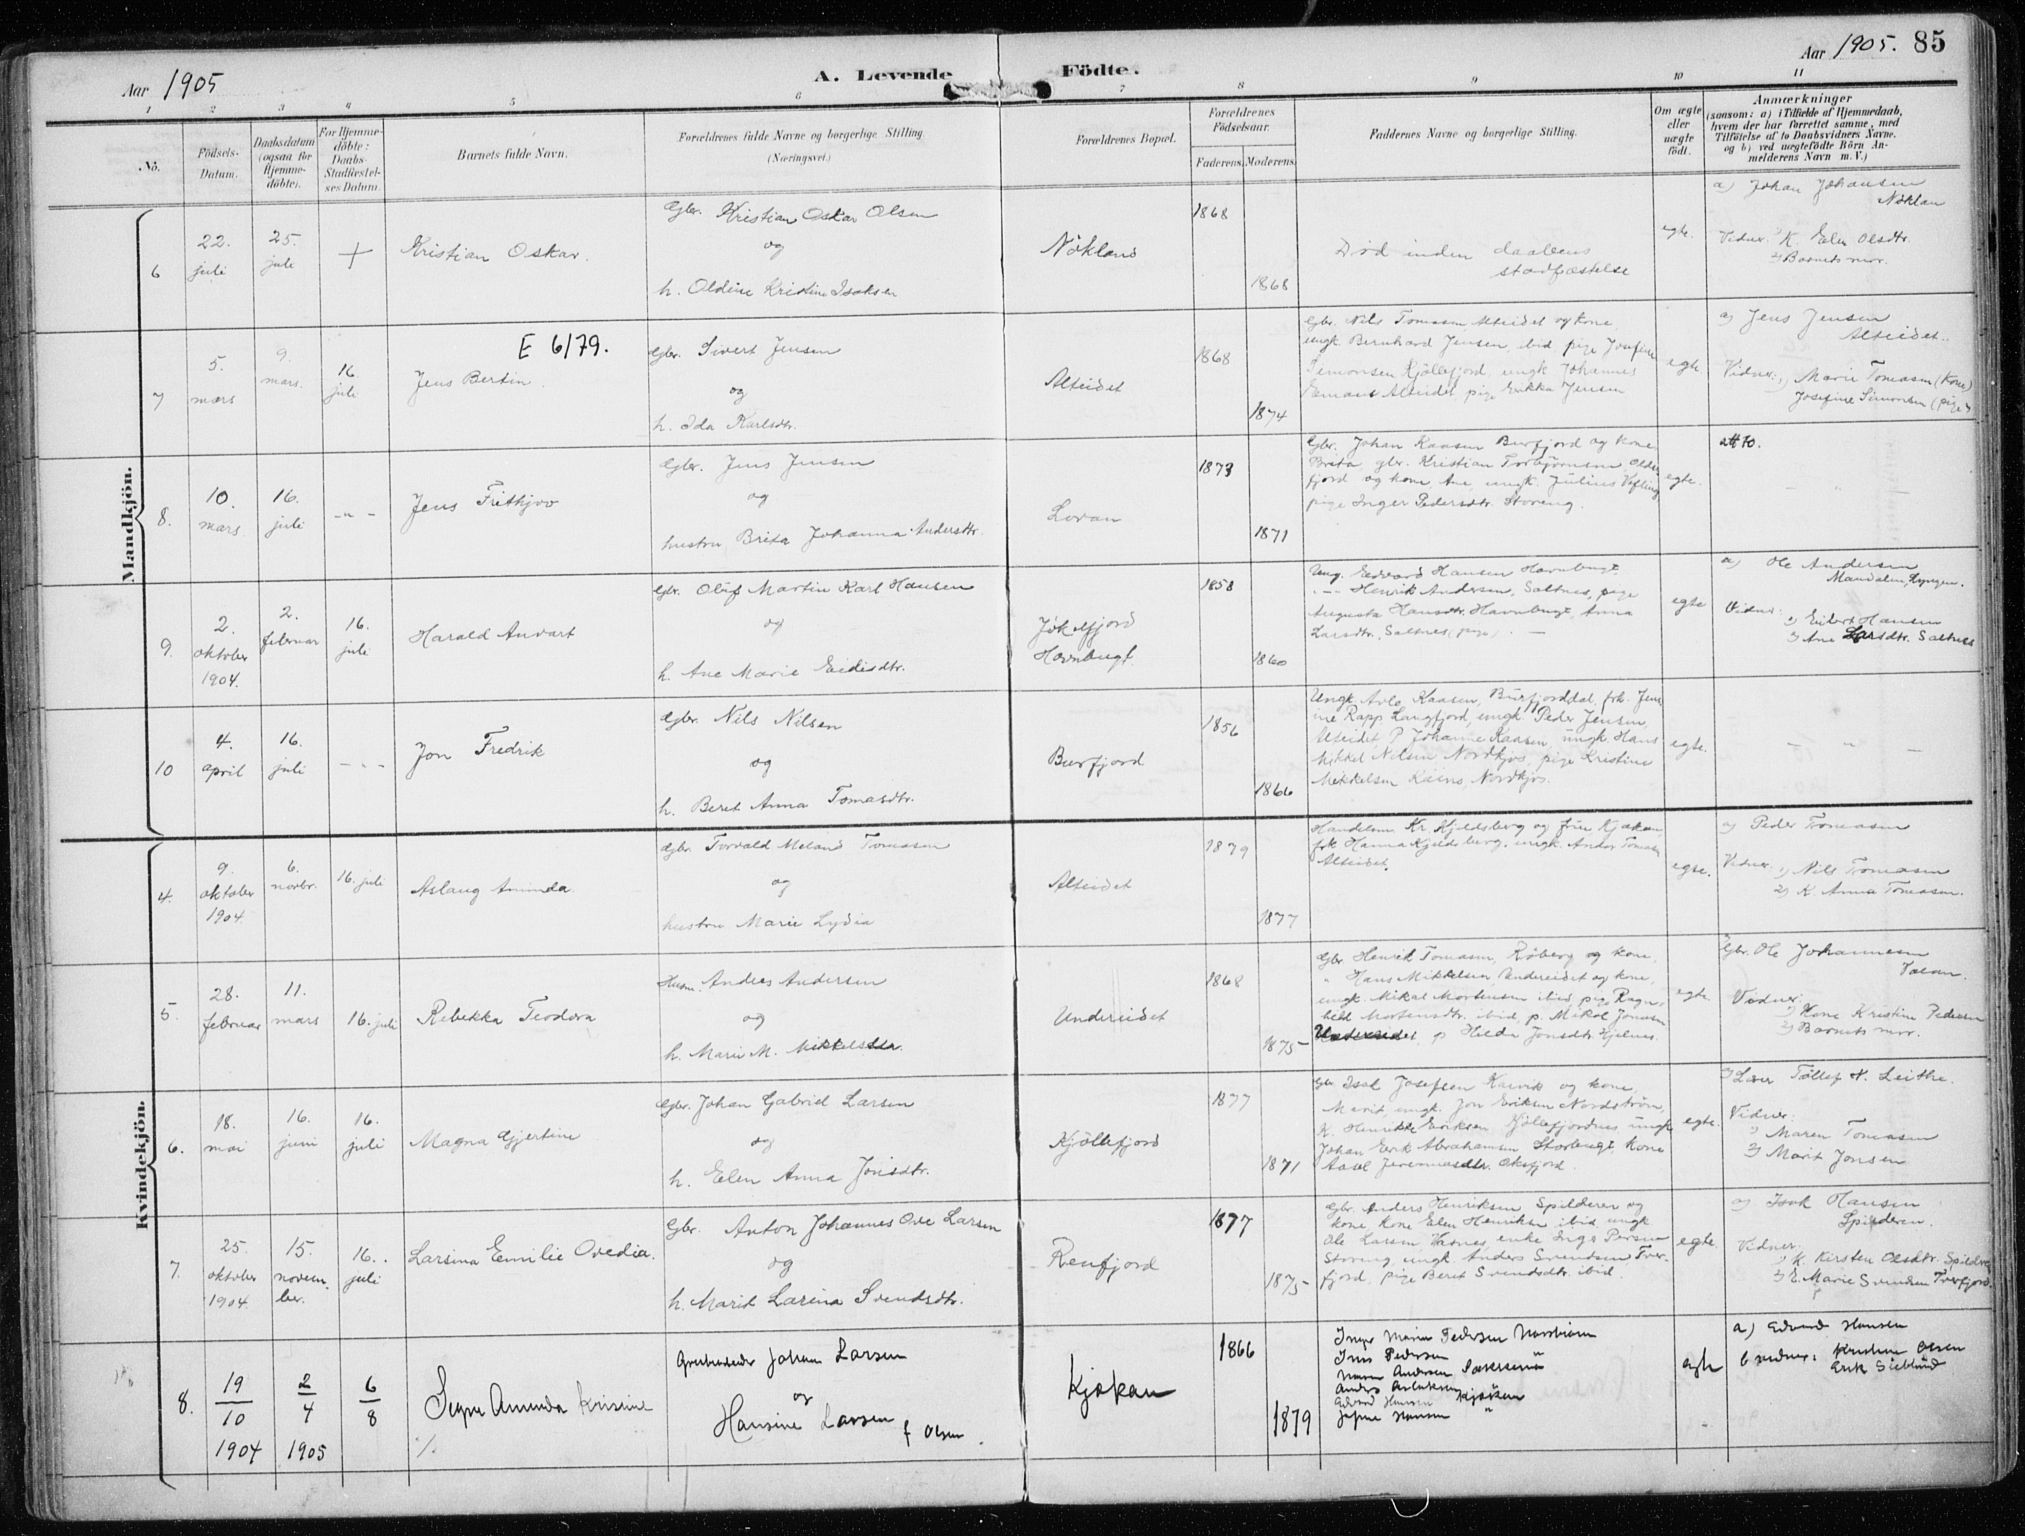 Aar 1905
A. Levende Födte.
Aar 1905. 85
1 2 3 4 5 6 7 8 9 10 11
No.
Födsels-
Datum.
Daabsdatum
(ogsaa for
Hjemme-
döbte).
For Hjemme-
döbte:
Daabs-
Stadfæstel-
ses Datum.
Barnets fulde Navn.
Forældrenes fulde Navne og borgerlige Stilling
(Næringsvei.)
Forældrenes Bopæl.
Forældrenes
Födselsaar.
Faderens. Moderens.
Faddernes Navne og borgerlige Stilling.
Om ægte
eller
uægte
födt.
Anmærkninger
(saasom: a) i Tilfælde af Hjemmedaab,
hvem der har forrettet samme, med
Tilföielse af to Daabsvidners Navne.
og b) ved uægtefödte Börn An-
melderens Navn m. V.)
Mandkjön.
6
22.
juli
25.
juli
+
Kristian Oskar.
Gbr. Kristian Oskar Olsen
og
h. Oldine Kristine Isaksen
Nökland
1868
1868
Död inden daabens
stadfæstelse
egte.
a) Johan Johansen
Nöklan
Vidner: K. Elen Olsdtr.
2) Barnets mor.
7
5.
mars
9.
mars.
16
juli
E 6/79.
Jens Bertin.
Gbr. Sivert Jensen
og
h. Ida Karlsdtr.
Alteidet
1868
1874
Gbr. Nils Tomasen, Alteidet og kone,
ungk. Bernhard Jensen, ibid, pige Josefine
Simonsen Kjöllefjord, ungk. Johannes
Alteidet, pige Erikka Jensen
egte
a) Jens Jensen
Alteidet.
Vidner: 1) Marie Tomasen (Kone)
Josefine Simonsen (pige)
8.
10.
mars.
16.
juli
- " -
Jens Frithjov
Gbr. Jens Jensen
og
hustru Brita Johanna Andersdtr.
Lovan
1873
1871
Gbr. Johan Kaasen Burfjord og kone
Brita gbr. Kristian Torbjörnsen Older
fjord og kone, Ane, ungk. Julius
pige Inger Pedersdtr. Storeng.
egte.
9.
2.
oktober
1904.
2.
februar
16.
juli
Harald Anvart
Gbr. Oluf Martin Karl Hansen
og
h. Ane Marie Eidisdtr.
Jökelfjord
Havnbugt.
1858
1860
Ung. Edvard Hansen Havnbugt.
Henrik Andersen, Saltnes, pige
Augusta Hansdtr. Havnbugt, Anna
Larsdtr. Saltnes (pige).
egte
a) Ole Andersen
Mandalen, Lyngen.
Vidner:
1) Eilert Hansen
2) Ane Larsdtr. Saltnes
10
4.
april
16.
juli
- - -
Jon Fredrik
Gbr. Nils Nilsen
og
h. Beret Anna Tomasdtr.
Burfjord
1856
1866
Ungk. Kaasen, Burfjorddal, frk. Jens
ine Rapp Langfjord, ungk. Peder Jensen,
Alteidet P. Johanne Kaasen, ungk. Hans
Mikkel Nilsen Nordkjos, pige Kristine
Mikkelsen Nordkjos.
egte.
- " -
Kvindekjön.
4.
9.
oktober
1904.
6.
novbr.
16. juli
Aslaug Aminda
Gbr. Torvald Meland Tomasen
og
hustru Marie Lydia
Alteidet
1879
1877
Handelsm. Kr. Kjeldsberg og frue Kjækan,
frk. Hanna Kjeldsberg. ungk. Tomasen
Alteidet.
egte.
a) Peder Tomasen
Vidner. 1) Nils Tomasen
2) K. Anna Tomasen.
5.
28.
februar
11.
mars
16. juli
Rebekka Teodora
Husm. Andreas Andersen
og
h. Marie M. Mikkelsdtr.
Undereidet
1868
1875
Gbr. Henrik Tomasen, Röberg og kone,
" Hans Mikkelsen, Undereidet og kone,
ungk. Mikal Mortensen ibid, pige Ragn-
hild Mortensdtr. ibid. p. Mikal Jonasen
Undereidet, p. Hilda Jonsdtr.
egte.
Gbr. Ole Johannesen
Vidner:
1) Kone Kristine Pedersen
2) Barnets mor.
6.
18.
mai
16.
juni
16.
juli
Magna Gjertine
Gbr. Johan Gabriel Larsen
og
h. Elen Anna Jonsdtr.
Kjöllefjord
1877
1871
Gbr. Isak Josefsen Karvik og kone,
Marit, ungk. Jon Eriksen Nordström,
K. Henrikke Eriksen, Kjöllefjordnes ungk
Johan Erik Abrahamsen Storbugt, kone
Jeremiasdtr. Oksfjord.
egte.
a) Lær Tollef N. Leithe.
Vidner:
1) Maren Tomasen
2) Marit Jonsen
7.
25.
oktober
1904.
15.
novem-
ber.
16.
juli
Larsina Emilie Ovedia.
Gbr. Anton Johannes Ove Larsen
og
h. Marit Larsina Svendsdtr.
Renfjord
1877
1875
Gbr. Anders Henriksen Spilderen og
kone, kone Elen Henriksen ibid, ungk
Ole Larsen, enke Inge
Storeng, ungk. Anders Svendsen Tver-
fjord, pige Beret Svendsdtr. ibid.
egte.
a) Isak Hansen
Spilderen.
Vidner:
1) K. Kirsten Olsdtr. Spildern
2) E. Marie Svendsen Tverfjord.
8.
19/10
1904
2/4
1905
6/8
Signe Amanda Kristine
Johan Larsen
og
Hansine Larsen f Olsen.
Kjækan
1866
1879
Inger Marie Pedersen
Pedersen
Andersen
Edvard Hansen Kjækan
Hansen "
egte
a) Edvard Hansen
b vidner: Kristine Olsen
Erik